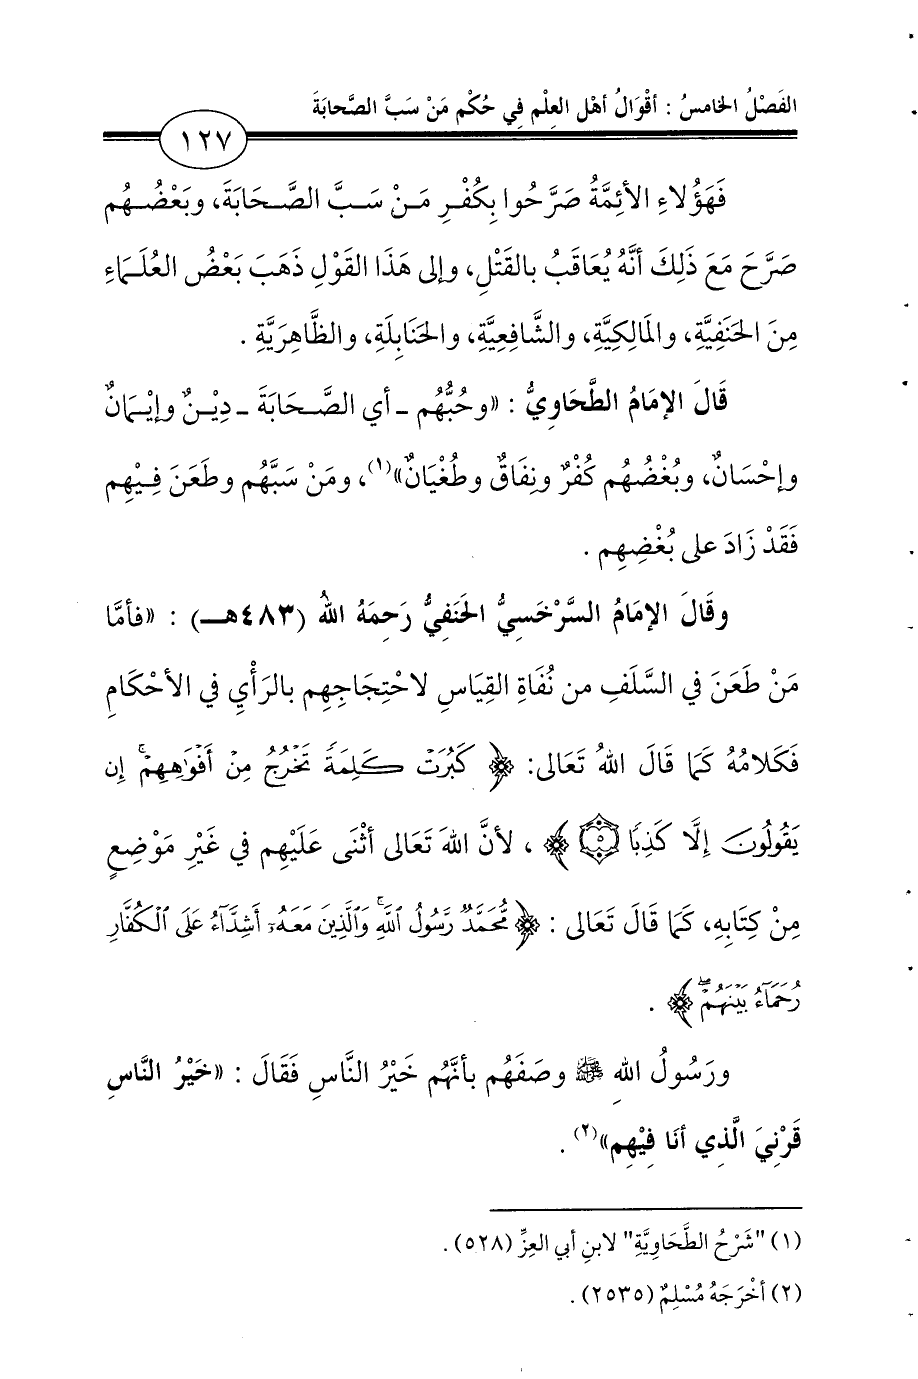 الفَصْلُ الخامسُ : أقْوَالُ أهْلِ العِلْمِ فِي حُكْمِ مَنْ سَبَّ الصَّحابَةَ
١٢٧
فَهَؤُلاءِ الأئِمَّةُ صَرَّحُوا بِكُفْرِ مَنْ سَبَّ الصَّحَابَةَ، وبَعْضُهُم
صَرَّحَ مَعَ ذَلِكَ أنَّهُ يُعَاقَبُ بالقَتْلِ، وإلى هَذَا القَوْلِ ذَهَبَ بَعْضُ العُلَمَاءِ
مِنَ الحَنَفِيَّةِ، والمَالِكِيَّةِ، والشَّافِعِيَّةِ، والحَنَابِلَةِ، والظَّاهِرِيَّةِ .
قَالَ الإمَامُ الطَّحَاوِيُّ : «وحُبُّهُم ـ أي الصَّحَابَةَ ـ دِيْنٌ وإيْمَانٌ
وإحْسَانٌ، وبُغْضُهُم كُفْرٌ ونِفَاقٌ وطُغْيَانٌ»(١)، ومَنْ سَبَّهُم وطَعَنَ فِيْهِم
فَقَدْ زَادَ على بُغْضِهِم .
وقَالَ الإمَامُ السَّرْخَسِيُّ الحَنَفِيُّ رَحِمَهُ اللهُ (٤٨٣هـ) : «فأمَّا
مَنْ طَعَنَ في السَّلَفِ من نُفَاةِ القِيَاسِ لاحْتِجَاجِهِم بالرَأْيِ في الأحْكَامِ
فَكَلامُهُ كَمَا قَالَ اللهُ تَعَالى: ﴿ كَبُرَتْ كَلِمَةً تَخْرُجُ مِنْ أَفْوَٰهِهِمْ ۚ إِن
يَقُولُونَ إِلَّا كَذِبًا ۝٥ ﴾ ، لأنَّ اللهَ تَعَالى أثْنَى عَلَيْهِم في غَيْرِ مَوْضِعٍ
مِنْ كِتَابِهِ، كَمَا قَالَ تَعَالى : ﴿ مُّحَمَّدٌ رَّسُولُ ٱللَّهِ ۚ وَٱلَّذِينَ مَعَهُۥٓ أَشِدَّآءُ عَلَى ٱلْكُفَّارِ
رُحَمَآءُ بَيْنَهُمْ ۖ ﴾ .
ورَسُولُ اللهِ ﷺ وصَفَهُم بأنَّهُم خَيْرُ النَّاسِ فَقَالَ : «خَيْرُ النَّاسِ
قَرْنِيَ الَّذِي أنَا فِيْهِم»(٢) .
(١) "شَرْحُ الطَّحَاوِيَّةِ" لابنِ أبي العِزِّ (٥٢٨) .
(٢) أخْرَجَهُ مُسْلِمٌ (٢٥٣٥) .